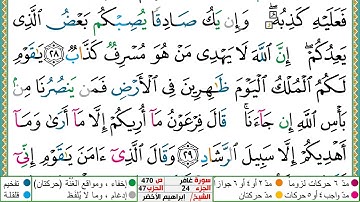 فَعَلَيْهِ كَذِبُهُۥ ۖ وَإِن يَكُ صَادِقًا يُصِبْكُم بَعْضُ ٱلَّذِى
يَعِدُكُمْ ۖ إِنَّ ٱللَّهَ لَا يَهْدِى مَنْ هُوَ مُسْرِفٌ كَذَّابٌ ٢٨ يَٰقَوْمِ
لَكُمُ ٱلْمُلْكُ ٱلْيَوْمَ ظَٰهِرِينَ فِى ٱلْأَرْضِ فَمَن يَنصُرُنَا مِنۢ
بَأْسِ ٱللَّهِ إِن جَآءَنَا ۚ قَالَ فِرْعَوْنُ مَآ أُرِيكُمْ إِلَّا مَآ أَرَىٰ وَمَآ
أَهْدِيكُمْ إِلَّا سَبِيلَ ٱلرَّشَادِ ٢٩ وَقَالَ ٱلَّذِىٓ ءَامَنَ يَٰقَوْمِ إِنِّىٓ
مدّ ٦ حركات لزوما مدّ ٢ أو ٤ أو ٦ جوازا سورة غافر ص 470 إخفاء، ومواقع الغُنَّة (حركتان) تفخيم
مدّ واجب ٤ أو ٥ حركات مدّ حركتان الجزء 24 الحزب 47 الشيخ: إبراهيم الأخضر إدغام، وما لا يُلفَظ قلقلة